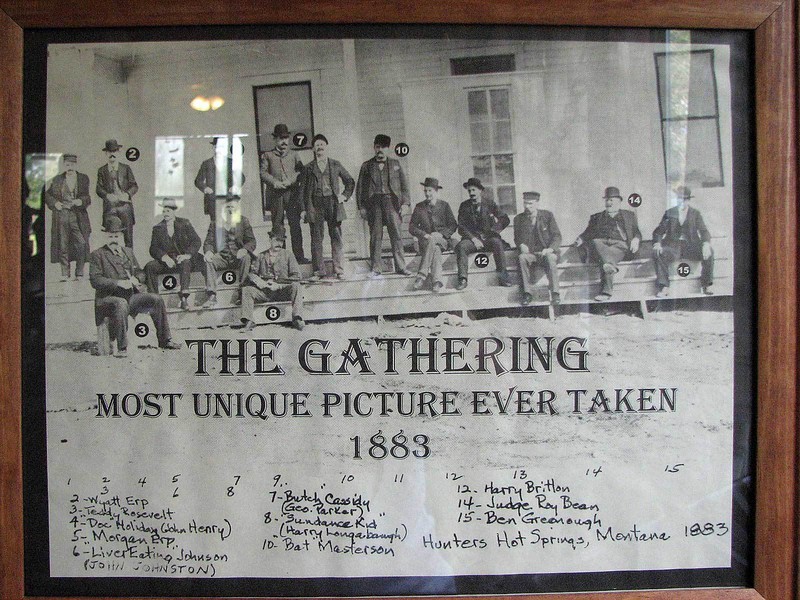 2
7
10
14
12
4
6
15
8
3
THE GATHERING
MOST UNIQUE PICTURE EVER TAKEN
1883
1 2 4 5 7 9 10 11 12 13 14 15
3 6 8
2-Wyatt Erp
3-Teddy Rosevelt
4-"Doc" Holiday (John Henry)
5-Morgan Erp
6-LiverEating Johnson
(JOHN JOHNSTON)
7-Butch Cassidy
(Geo. Parker)
8-"Sundance Kid"
(Harry Longabaugh)
10-Bat Masterson
12-Harry Britton
14-Judge Roy Bean
15-Ben Greenough
Hunters Hot Springs, Montana 1883